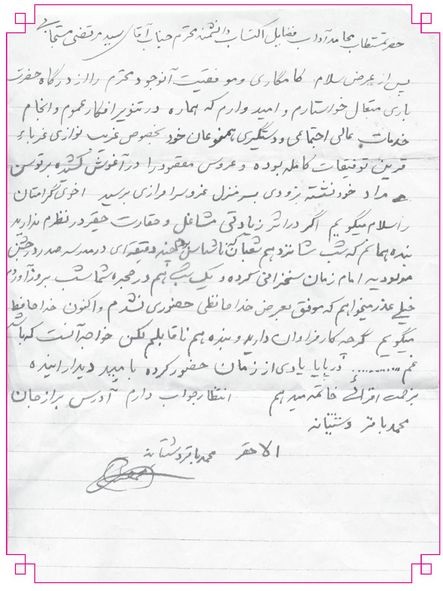 حضرت مستطاب محامد آداب فضایل اکتساب دانشمند محترم جناب آقای سید مرتضی
پس از عرض سلام کامکاری و موفقیت آنوجود محترم را از درگاه حضرت
باری متعال خواستارم و امیدوارم که همواره در تنویر افکار عموم و انجام
خدمات عالی اجتماعی و دستگیری همنوعان خود بخصوص غریب نوازی غرباء
قرین توفیقات کامله بوده و عروس مقصود را در آغوش کشیده بر توسن
مراد خود نشسته بزودی بسر منزل عز و سرافرازی برسید اخوی گرامتان
را سلام میگویم اگر در اثر زیادتی مشاغل و حقارت حقیر در نظرم ندارید
بنده همانم که شب شانزدهم شعبان دقیقه‌ای در مدرسه صدر در جشن
مولودیه امام زمان سخنرانی کرده و یک شب هم در حجره شما شب بروز آوردم
خیلی عذر میخواهم که موفق بعرض خداحافظی حضوری نشدم و اکنون خداحافظ
میگویم گرچه کار فراوان دارید و بنده هم ناقابلم لکن خواهد آنست که باشد
غم .......... در پایان یادی از زمان حضور کرده با امید دیدار آینده
خاتمه میدهم انتظار جواب دارم آدرس برازجان
محمد باقر وشتانه
الاحقر محمد باقر وشتانه